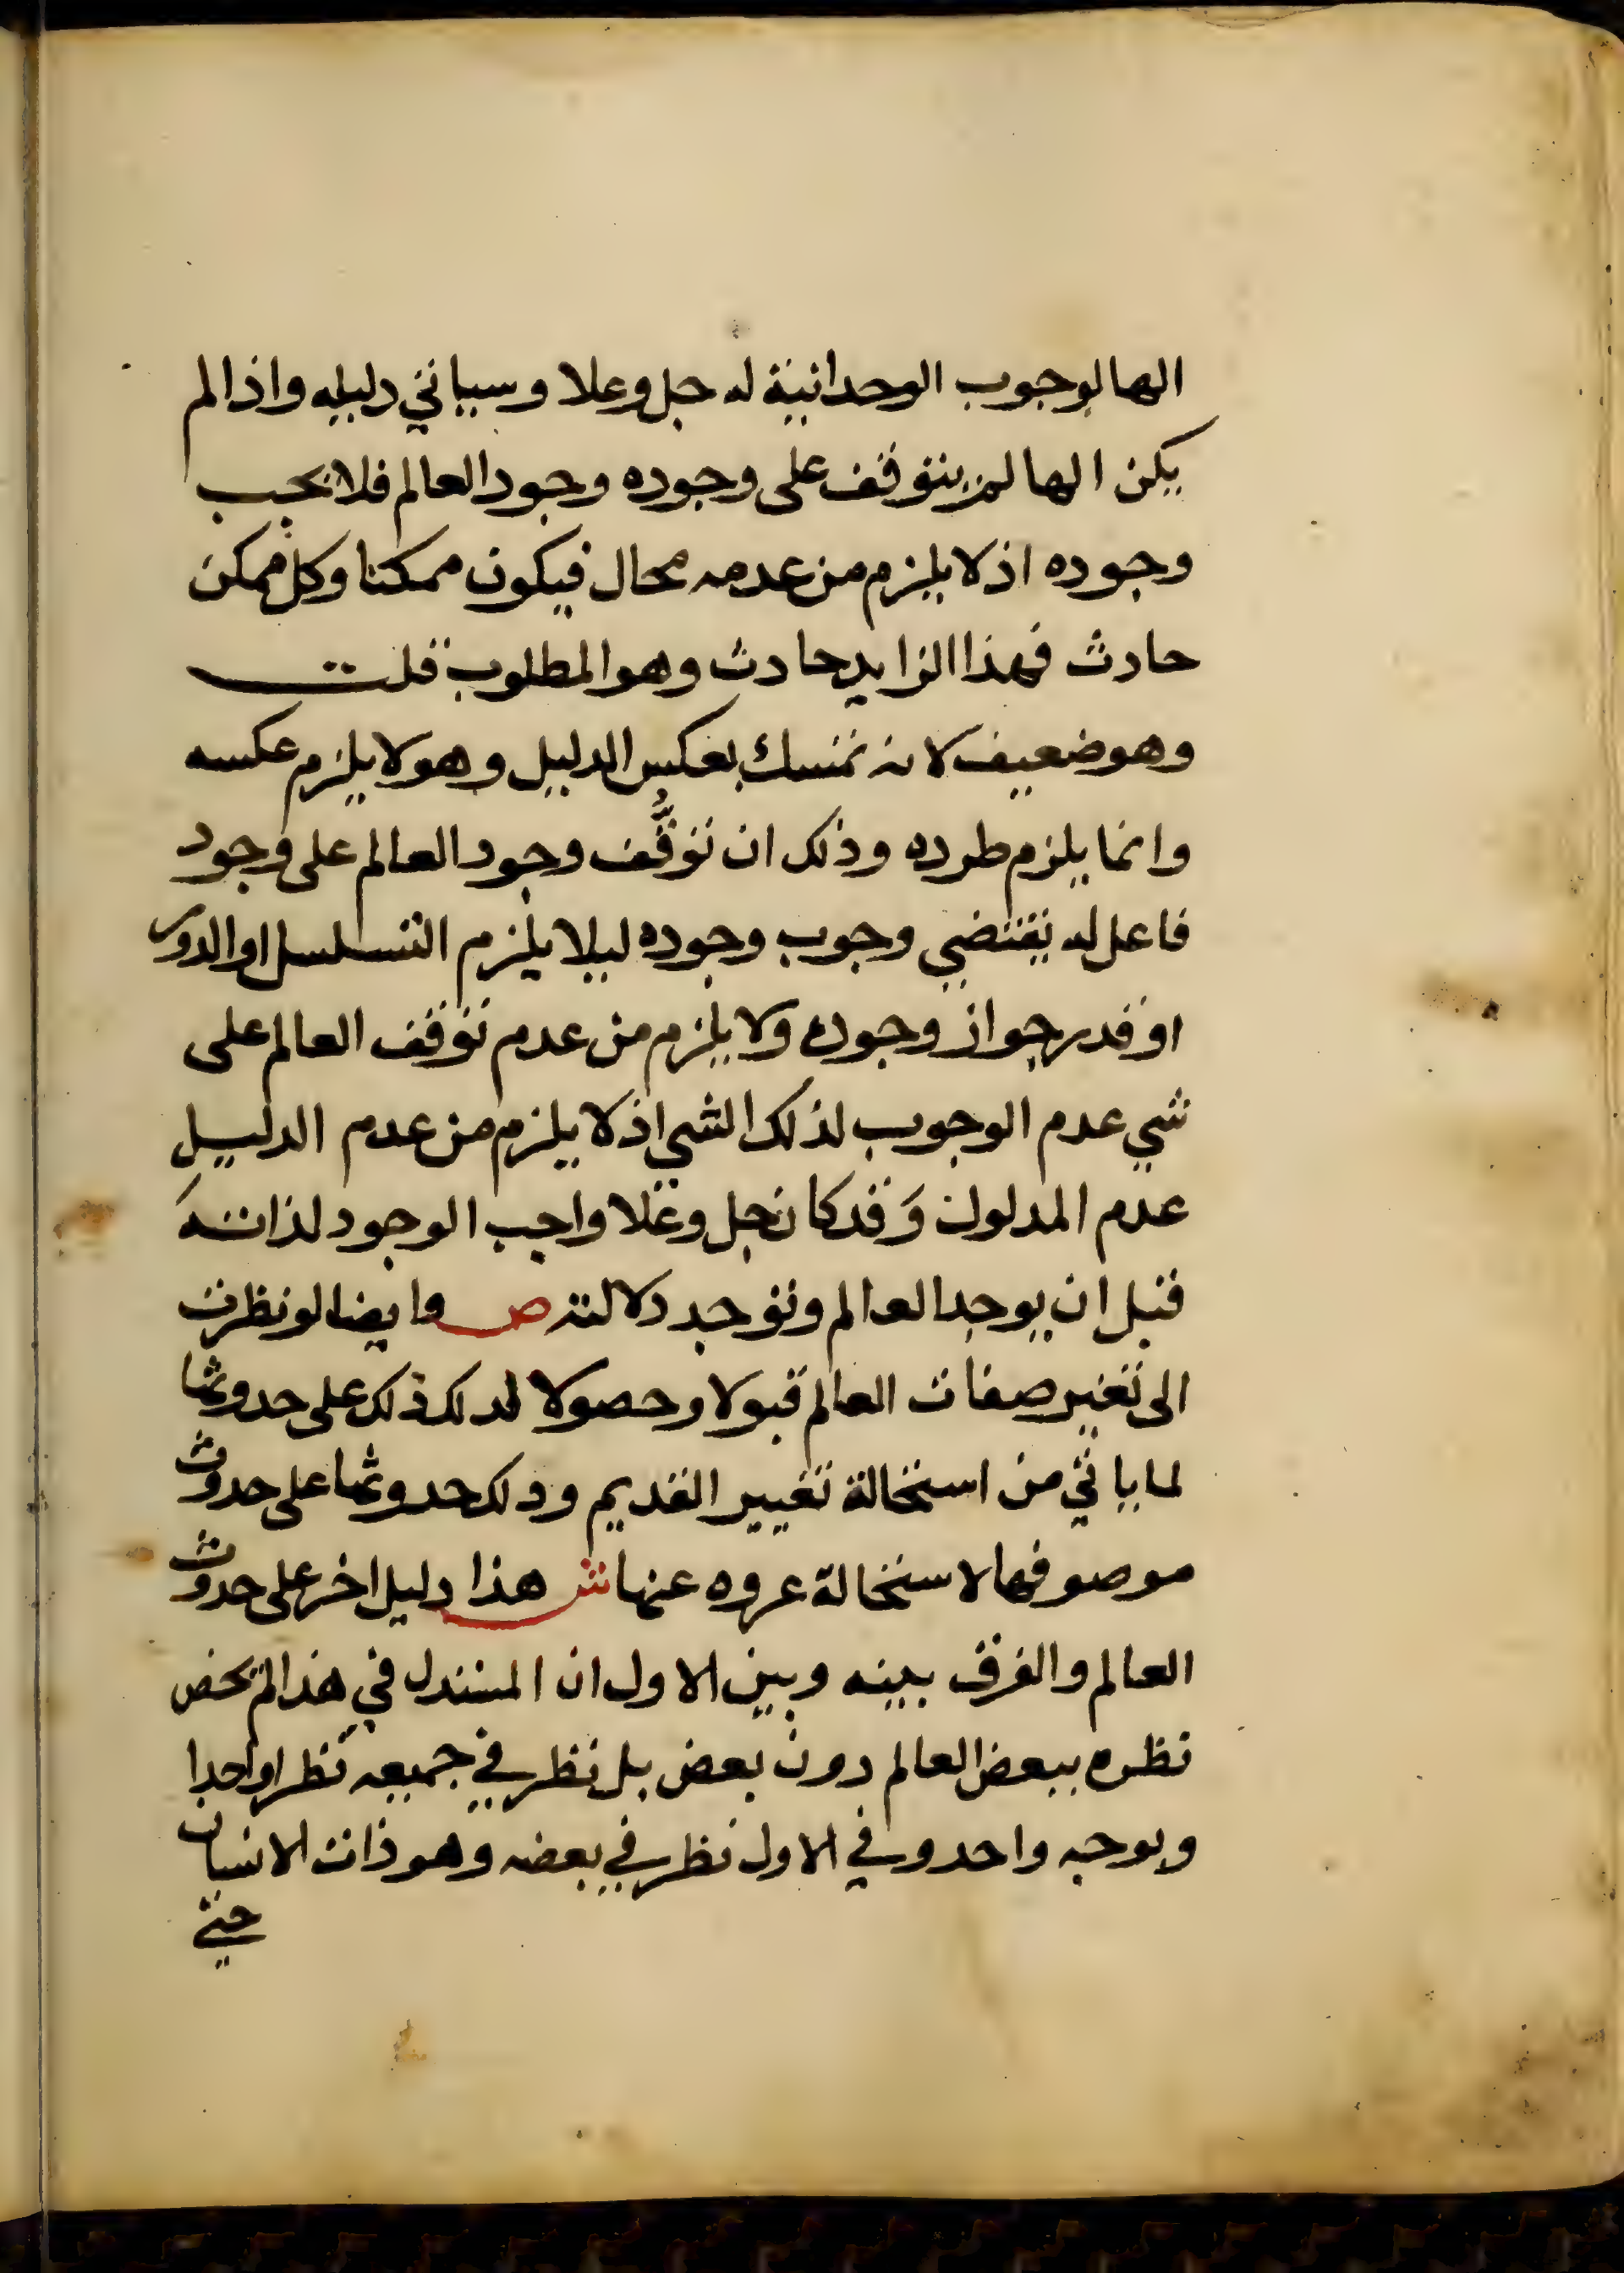 الها لوجوب الوحدانية له جل وعلا وسياتي دليله واذا لم
يكن الها لم يتوقف على وجوده وجود العالم فلا يجب
وجوده اذ لا يلزم من عدمه محال فيكون ممكنا وكل ممكن
حادث فهذا الزايد حادث وهو المطلوب قلت
وهو ضعيف لانه تمسك بعكس الدليل وهو لا يلزم عكسه
وانما يلزم طرده وذلك ان توقُّف وجود العالم على وجود
فاعل له يقتضي وجوب وجوده ليلا يلزم التسلسل او الدور
او قدر جواز وجوده ولا يلزم من عدم توقف العالم على
شي عدم الوجوب لذلك الشي اذ لا يلزم من عدم الدليل
عدم المدلول وَقد كان جل وعلا واجب الوجود لذاته
قبل ان يوجد العالم وتوجد دلالته ص وايضا لو نظرت
الى تغير صفات العالم قبولا وحصولا لدلك ذلك على حدوثها
لما ياتي من استحالة تغيير القديم ودلك حدوثها على حدوث
موصوفها لاستحالة عروه عنها ش هذا دليل اخر على حدوث
العالم والفرق بينه وبين الاول ان المستدل في هذا لم يخص
نظره ببعض العالم دون بعض بل نظر في جميعه نظرا واحدا
وبوجه واحد وفي الاول نظر في بعضه وهو ذات الانسان
حتي